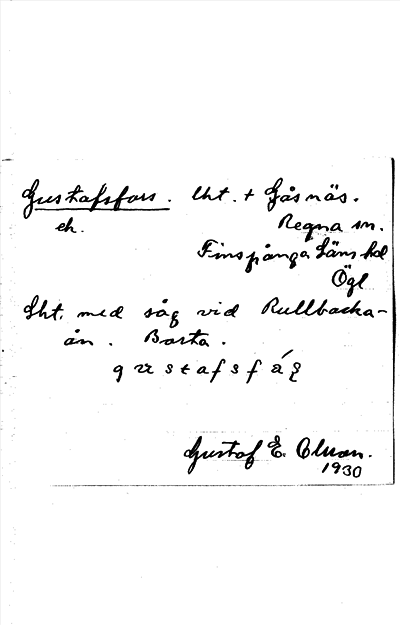 Gustafsfors. lht. + Gåsnäs.
ek. Regna sn.
Finspånga Läns hd
Ögl
Lht. med såg vid Rullbacka-
ån. Basta.
Gustaf E. Olsson.
1930